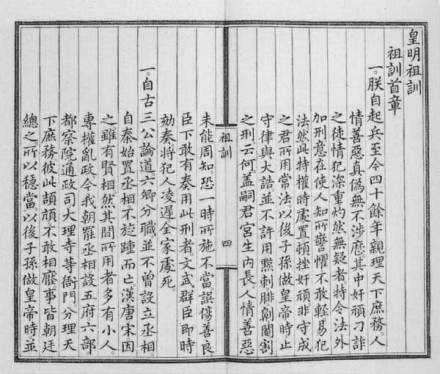 皇明祖訓
祖訓首章
一朕自起兵至今四十餘年親理天下庶務人
情善惡真偽無不涉歷其中奸頑刁詐
之徒情犯深重灼然無疑者特令法外
加刑意在使人知所警懼不敢輕易犯
法然此特權時處置頓挫奸頑非守成
之君所用常法以後子孫做皇帝時止
守律與大誥並不許用黥刺腓劓閹割
之刑云何蓋嗣君宮生內長人情善惡
祖訓
四
未能周知恐一時所施不當誤傷善良
臣下敢有奏用此刑者文武群臣即時
劾奏將犯人凌遲全家處死
一自古三公論道六卿分職並不曾設立丞相
自秦始置丞相不旋踵而亡漢唐宋因
之雖有賢相然其間所用者多有小人
專權亂政今我朝罷丞相設五府六部
都察院通政司大理寺等衙門分理天
下庶務彼此頡頏不敢相壓事皆朝廷
總之所以穩當以後子孫做皇帝時並